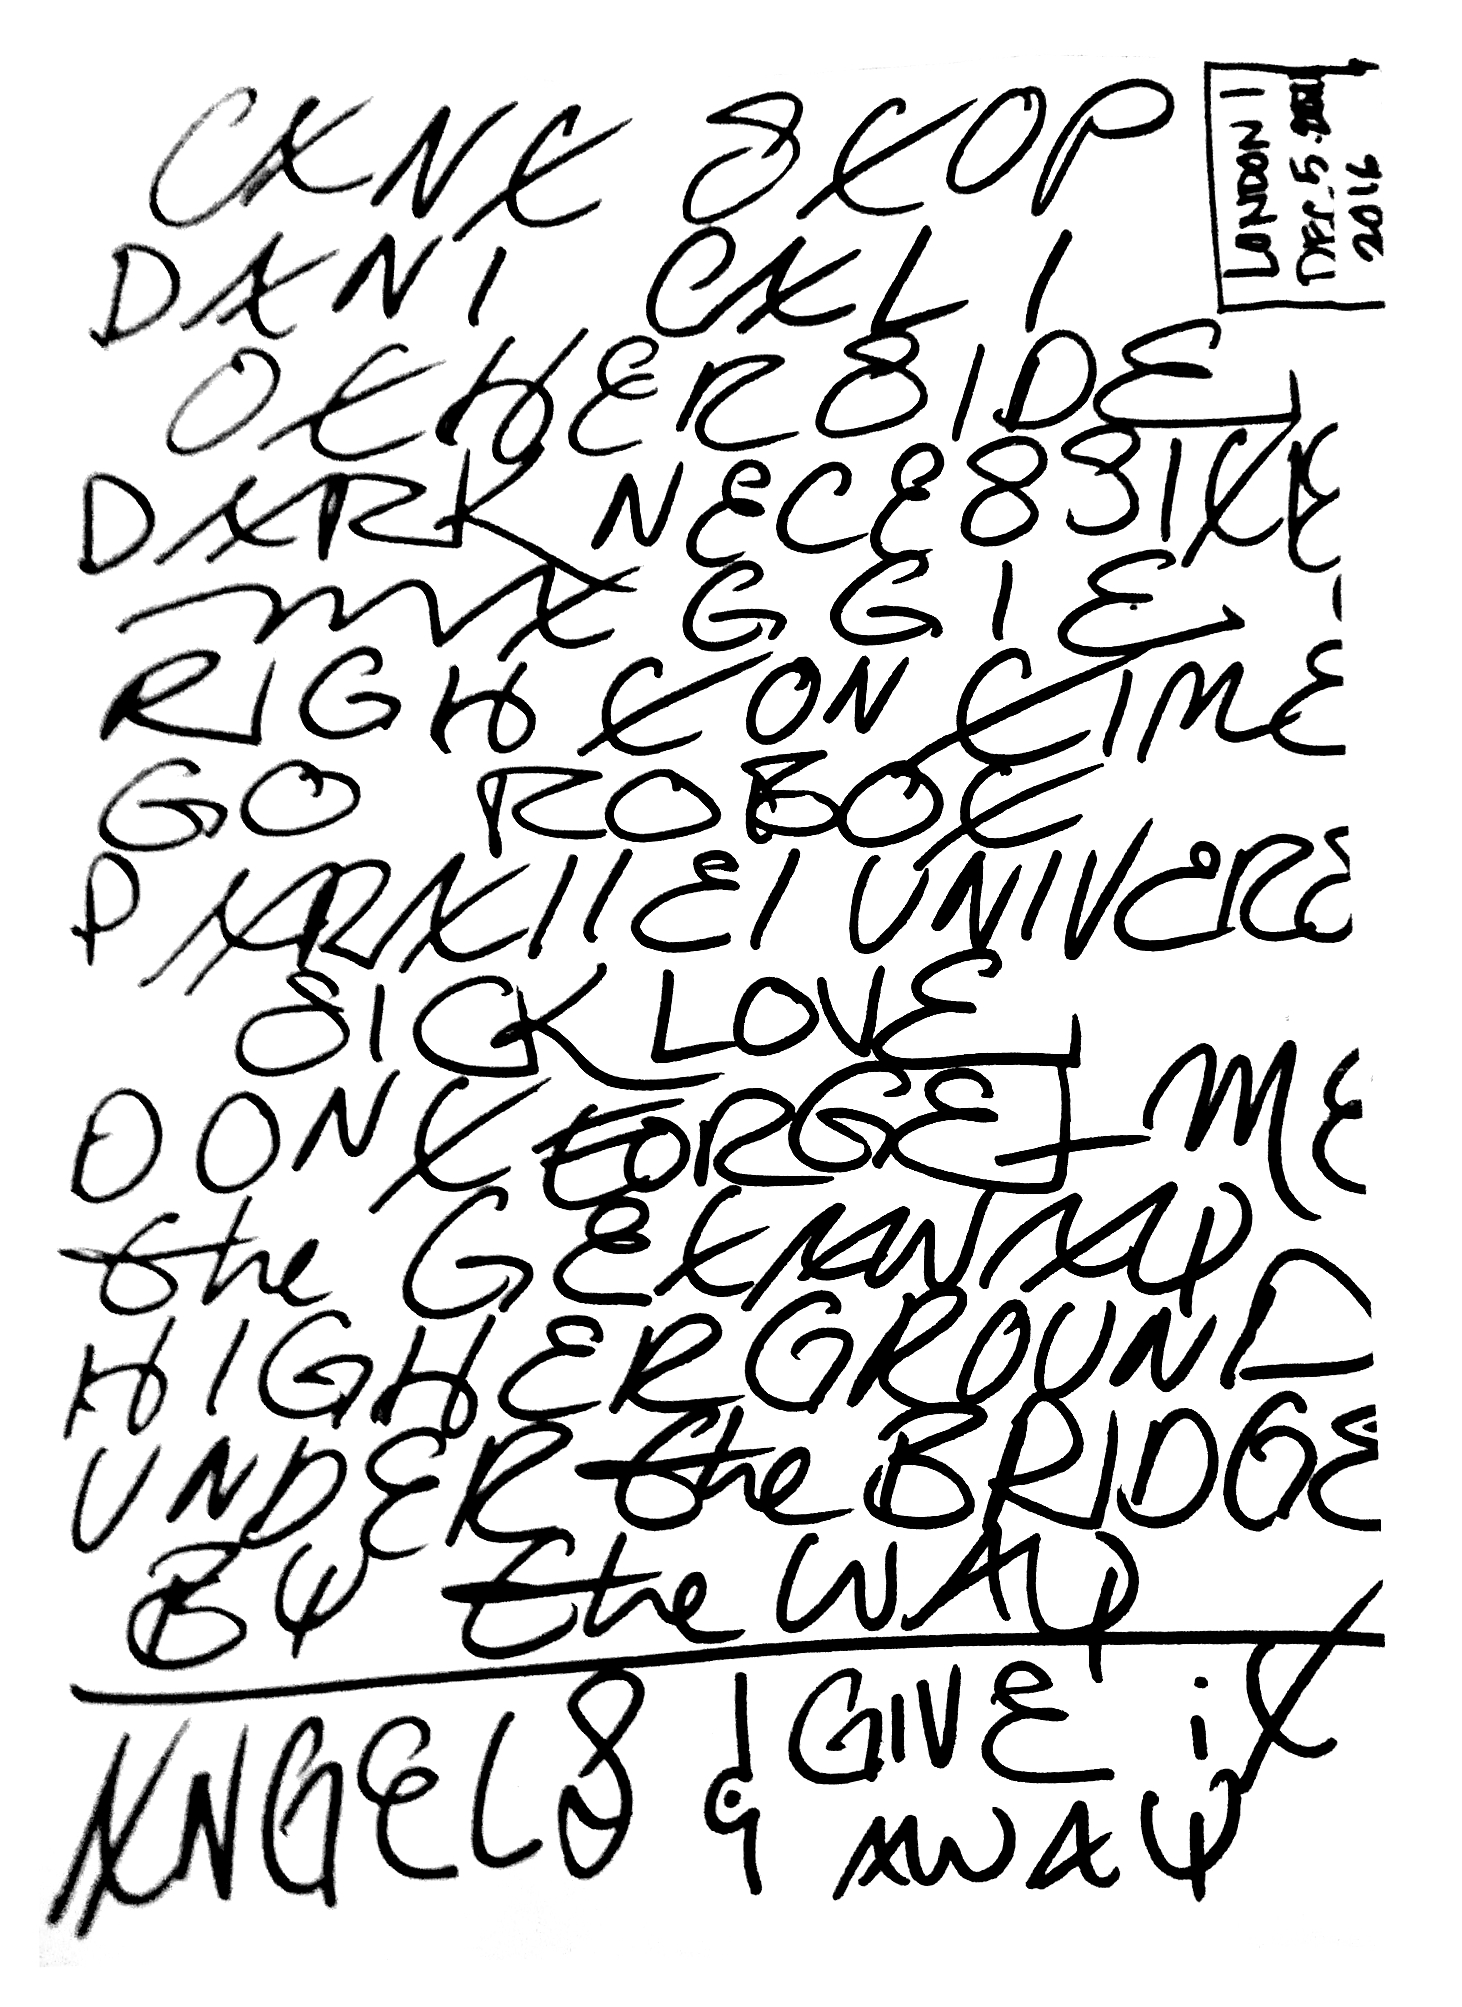 CANT STOP
LONDON 1
DEC. 5
2016
DANI CALI
OTHERSIDE
DARK NECESSITIE
MAGGIE
RIGHT ON TIME
GO ROBOT
PARALLEL UNIVERE
SICK LOVE
DONT FORGET ME
the GETAWAY
HIGHER GROUND
UNDER the BRIDGE
BY the WAY
ANGELS
GIVE iT
AWAY